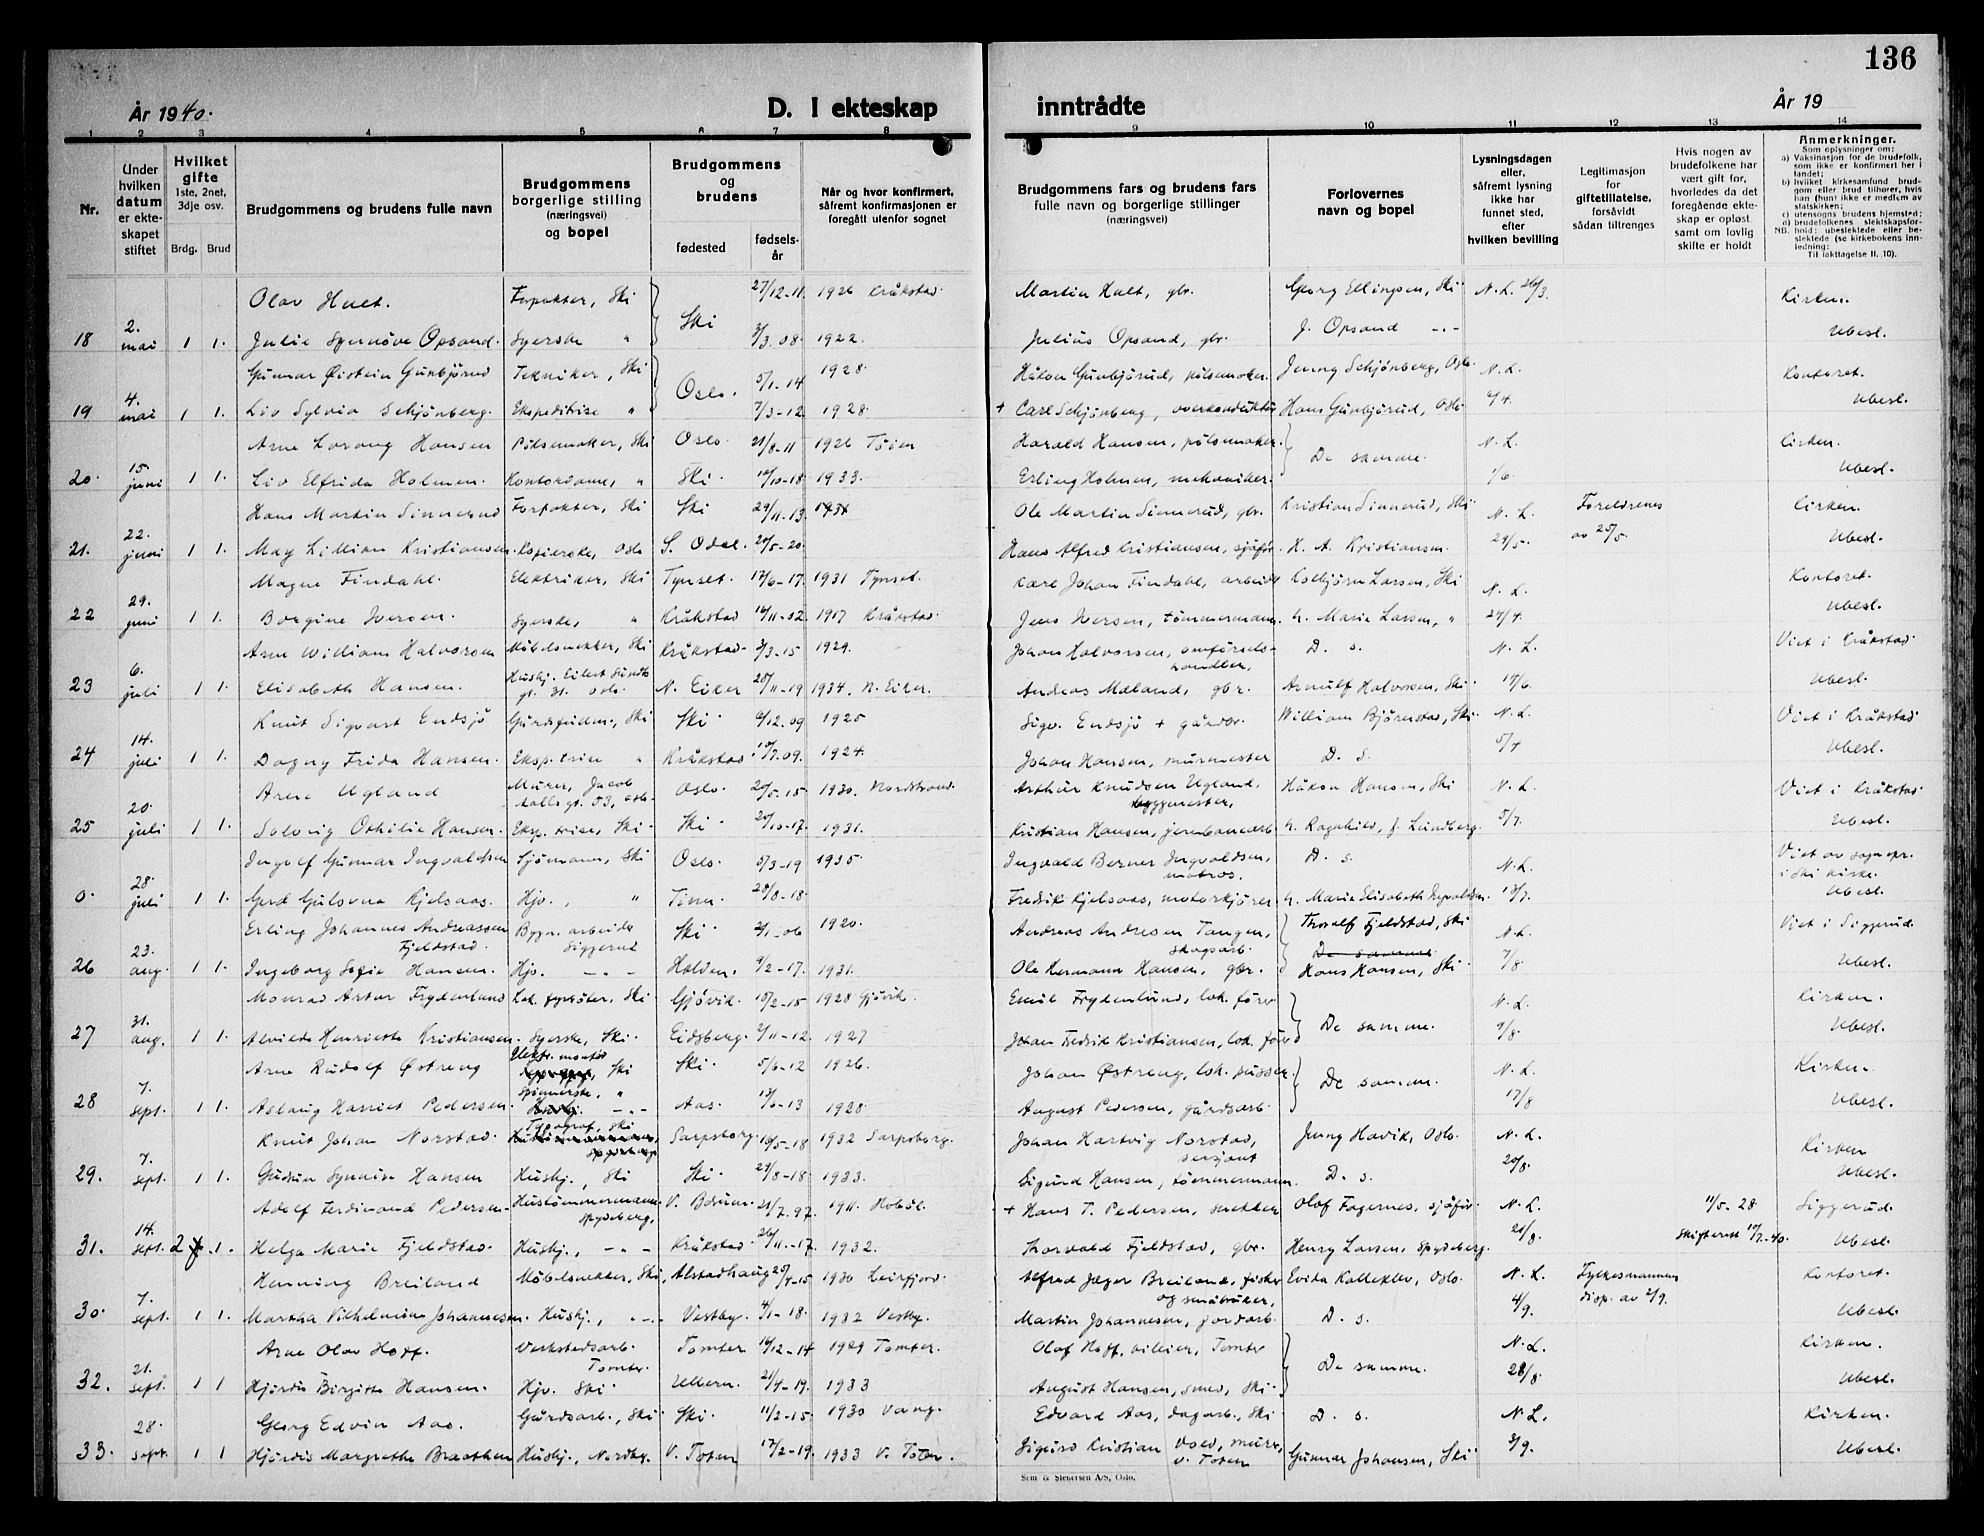 136
År 1940.
D. I ekteskap inntrådte
År 19
1 2 3 4 5 6 7 8 9 10 11 12 13 14
Nr.
Under hvilken datum er ekteskapet stiftet
Hvilket gifte
1ste, 2net, 3dje osv.
Brdg. Brud
Brudgommens og brudens fulle navn
Brudgommens borgerlige stilling (næringsvei) og bopel
Brudgommens og brudens
fødested
fødselsår
Når og hvor konfirmert, såfremt konfirmasjonen er foregått utenfor sognet
Brudgommens fars og brudens fars fulle navn og borgerlige stillinger (næringsvei)
Forlovernes navn og bopel
Lysningsdagen eller, såfremt lysning ikke har funnet sted, efter hvilken bevilling
Legitimasjon for giftetillatelse, forsåvidt sådan tiltrenges
Hvis nogen av brudefolkene har vært gift før, hvorledes da det foregående ekteskap er opløst samt om lovlig skifte er holdt
Anmerkninger.
Som oplysninger om:
a) Vaksinasjon for de brudefolk, som ikke er konfirmert her i landet;
b) hvilket kirkesamfund brudgom eller brud tilhører, hvis han (hun) ikke er medlem av statskirken;
c) utensogns brudens hjemsted;
d) brudefolkenes slektskapsforhold: ubeslektede eller beslektede (se kirkebokens innledning:
NB.
Til iakttagelse II. 10).
Olav Hult. Forpakter, Ski 27/12-11 1926 Kråkstad Martin Hult, gbr. Georg Ellingsen, Ski N.L. 26/3. Kirken.
18 2. mai 1 1. Julie Synnöve Opsand. Syerske " Ski 3/3.08. 1922. Julius Opsand, gbr. J. Opsand -"- Ubesl.
Gunnar Øistein Gunbjörud Tekniker, Ski 5/1-14 1928. Håkon Gunbjörud, pölsemaker. Jenny Schjönberg, Oslo. N.L. Kontoret.
19 4. mai 1 1. Liv Sylvia Schjönberg. Ekspeditrise " Oslo. 7/3-12 1928. + Carl Schjönberg, overkonduktör Hans Gunbjörud, Oslo Ubesl.
Arne Hansen Pölsemaker, Ski Oslo. 21/8-11 1926 Töien Harald Hansen, pölsemaker. N.L. Kirken.
20. 15. juni 1 1. Liv Elfrida Holmen. Kontordame, " Ski. 10/10-18 1933. Erling Holmen, mekaniker. De samme. 1/6. Ubesl.
Hans Martin Sinnerud Forpakter, Ski Ski 29/11-13 Ole Martin Sinnerud, gbr. Kristian Sinnerud, Ski N.L. Foreldrenes Kirken.
21. 22. juni 1 1. May Lillian Kristiansen. Oslo S. Odal. 20/5-20 Hans Alfred Kristiansen, sjåför. H. A. Kristiansen. 29/5. av 25/5. Ubesl.
Magne Findahl. Elektriker, Ski Tynset. 17/6-17. 1931 Tynset. Karl Johan Findahl, arbeider Kolbjörn Larsen, Ski N.L. Kontoret.
22 29. juni 1 1. Borgine Iversen. Syerske, " Kråkstad 16/11-02. 1917 Kråkstad. Jens Iversen, tömmermann. Marie Larsen, " 24/4. Ubesl.
Arne William Halvorsen Möbelsnekker, Ski Kråkstad 3/3-15 1929. Johan Halvorsen, D. s. N.L. Viet i Kråkstad
handler,
23 6. juli 1 1. Elisabeth Hansen. Hushj. Eilert Sundts gt. 31. Oslo. N. Eiker 20/11-19 1934. N. Eiker. Andreas Mæland, gbr. Arnulf Halvorsen, Ski 17/6. Ubesl.
Knut Sigvart Endsjö Gårdsfullm., Ski Ski 6/12.09 1925 Sigv. Endsjö + gårdbr. William Björnstad, Ski N.L. Viet i Kråkstad
24 14. juli 1 1. Dagny Frida Hansen. Eksp.trise " Kråkstad 10/7.09. 1924. Johan Hansen, murmester D. s. 5/7 Ubesl.
Arne Ugland Murer, Jacob Oslo. 20/5-15 1930. Nordstrand. Arthur Knudsen Ugland, byggmester, Håkon Hansen, Ski N.L. Viet i Kråkstad
25 20. juli 1 1. Solveig Othilie Hansen. Eksp.trise, Ski. Ski. 20/10-17. 1931. Kristian Hansen, jernbanearb Ragnhild, f. Lundberg. 5/7. Ubesl.
Ingolf Gunnar Ingvaldsen Sjömann, Ski Oslo. 5/3-19 1935. Ingvald Berner Ingvaldsen, matros. D. s. N.L. Viet av sognepr. i Ski kirke.
0. 28. juli 1 1. Gerd Gulovna Kjelsaas. Hjv., " Tinn. 28/8-18. Fredrik Kjelsaas, motorkjörer Marie Elisabeth Ingvaldsen. 13/7. Ubesl.
Erling Johannes Andreassen Fjeldstad. Bygn. arbeider Siggerud Ski. 2/1-06 1920. Andreas Andresen Tangen, skogsarb. Thoralf Fjeldstad, Ski N.L. Viet i Siggerud.
26 23. aug. 1 1. Ingeborg Sofie Hansen. Hjv. -"- Holden. 4/2-17. 1931. Ole Hermann Hansen, gbr. De samme Hans Hansen, Ski 7/8 Ubesl.
Monrad Artur Frydenlund Lok. fyrböter, Ski. Gjövik. 15/2-15 1928 Gjövik. Emil Frydenlund, lok. förer N.L. Kirken.
27 31. aug. 1 1. Alvilde Henriette Kristiansen. Syerske, Ski. Eidsberg. 2/11-12. 1927 Johan Fredrik Kristiansen, lok. förer De samme. 9/8. Ubesl.
Arne Rudolf Østreng Elektr. montör Ski Ski. 5/6-12 1926. Johan Østreng, lok. pusser. N.L. Kirken.
28 7. sept. 1 1. Aslaug Harriet Pedersen. Spinnerske, " Aas. 13/6-13 1928. August Pedersen, gårdsarb. De samme. 17/8 Ubesl.
Knut Johan Norstad. Typograf, Ski Sarpsborg. 10/5-18 1932 Sarpsborg. Johan Hartvig Norstad, sersjant Jenny Havik, Oslo. N.L. Kirken
29. 7. sept. 1 1. Gudrun Synnöve Hansen Hushj., Ski Ski. 24/8-18. 1933. Sigurd Hansen, tömmermann. D. s. 20/8. Ubesl.
Adolf Ferdinand Pedersen. Hustömmermann Spydeberg. V. Bærum. 21/7.97. 1911. Hobøl. + Hans T. Pedersen, snekker Olaf Fagernes, sjåför N.L. 11/5-28 Siggerud.
31. 14. sept. 2 1. Helga Marie Fjeldstad. Hushj., -"- Kråkstad. 26/11-17. 1932. Thorvald Fjeldstad, gbr. Henry Larsen, Spydeberg. 21/8. Skifterett 17/7-40. Ubesl.
Henning Breiland Möbelsnekker, Ski. Alstadhaug 25/4-15 1930 Leirfjord. Alfred Jæger Breiland, fisker og småbruker, Evida Kalleklev, Oslo. N.L. Fylkesmannen Kontoret.
30. 7. sept. 1 1 Martha Vilhelmine Johannesen. Hushj., -"- Vestby. 4/1-18. 1932 Vestby. Martin Johannesen, jordarb. D. s. 4/9. disp. av 2/9. Ubesl.
Arne Olav Hoff. Verkstedsarb. Tomter. Tomter 16/12-14 1929 Tomter. Olaf Hoff, Tomter N.L. Kirken.
32. 21. sept. 1 1 Hjördis Birgitte Hansen. Hjv. Ski. Ullern. 21/4-19. 1933 August Hansen, smed, Ski. De samme. 28/8. Ubesl.
Georg Edvin Aas. Gårdsarb., Ski. Ski. 11/2-15. 1930 Vang. Edvard Aas, dagarb., Ski D. s. N.L. Kirken.
33. 28 sept. 1 1 Hjördis Margrethe Braathen Hushj., Nordbg. V. Toten 17/2-19. 1933 V. Toten. Sigurd Kristian Vold, murer, V. Toten Gunnar Johansen, Ski 3/9. Ubesl.
Sem & Stenersen A/S, Oslo.